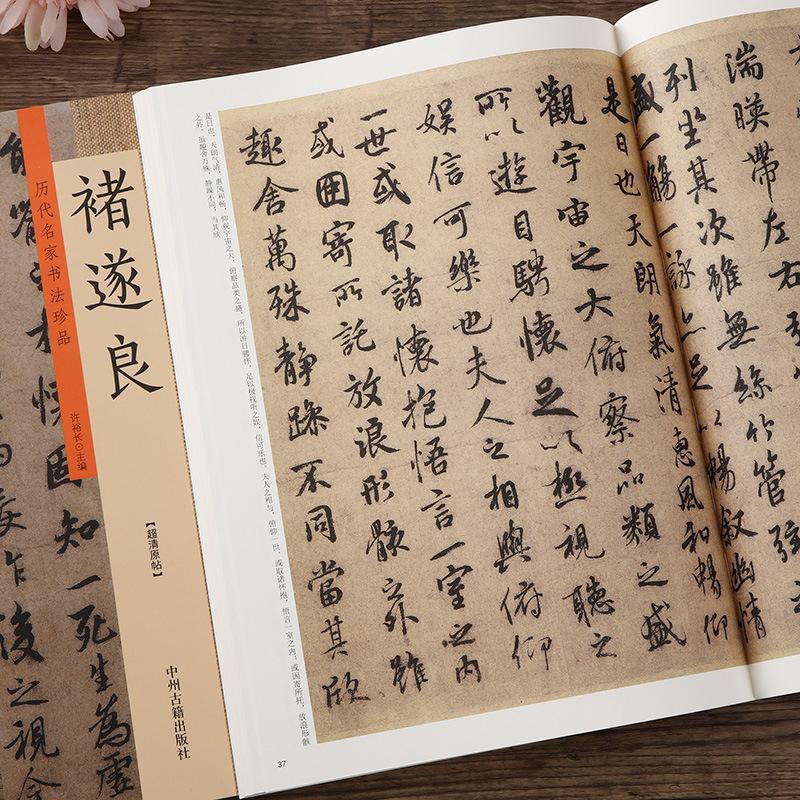 历代名家书法珍品
褚遂良
许裕长⊙主编
【超清原帖】
中州古籍出版社
懷固知一死生為虛
後之視今
湍暎帶左右引
列坐其次雖無絲竹管弦之
盛一觴一詠亦足以暢敘幽情
是日也天朗氣清惠風和暢仰
觀宇宙之大俯察品類之盛
所以遊目騁懷足以極視聽之
娛信可樂也夫人之相與俯仰
一世或取諸懷抱悟言一室之内
或因寄所託放浪形骸之外雖
趣舍萬殊靜躁不同當其欣
是日也，天朗气清，惠风和畅，仰观宇宙之大，俯察品类之盛，所以游目骋怀，足以极视听之娱，信可乐也。夫人之相与，俯仰一世，或取诸怀抱，悟言一室之内；或因寄所托，放浪形骸
之外。虽趣舍万殊，静躁不同，当其欣
37